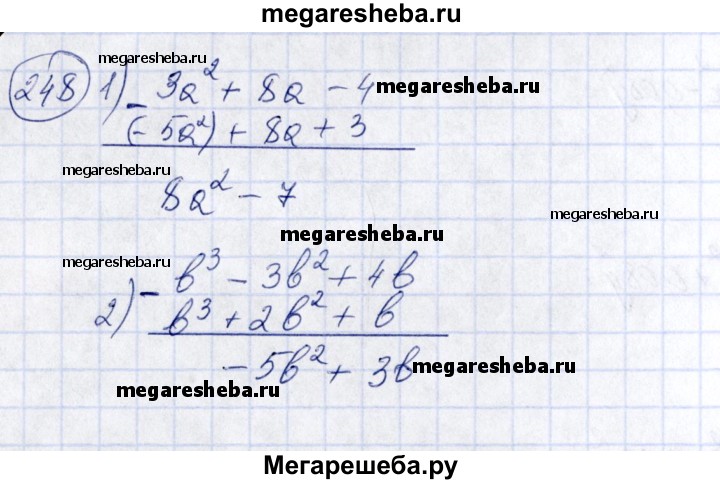 megaresheba.ru
megaresheba.ru
248 1) - 3a² + 8a - 4 megaresheba.ru
(-5a²) + 8a + 3
megaresheba.ru
8a² - 7
megaresheba.ru
megaresheba.ru
megaresheba.ru
2) - b³ - 3b² + 4b
b³ + 2b² + b
-5b² + 3b megaresheba.ru
megaresheba.ru
Мегарешеба.ру